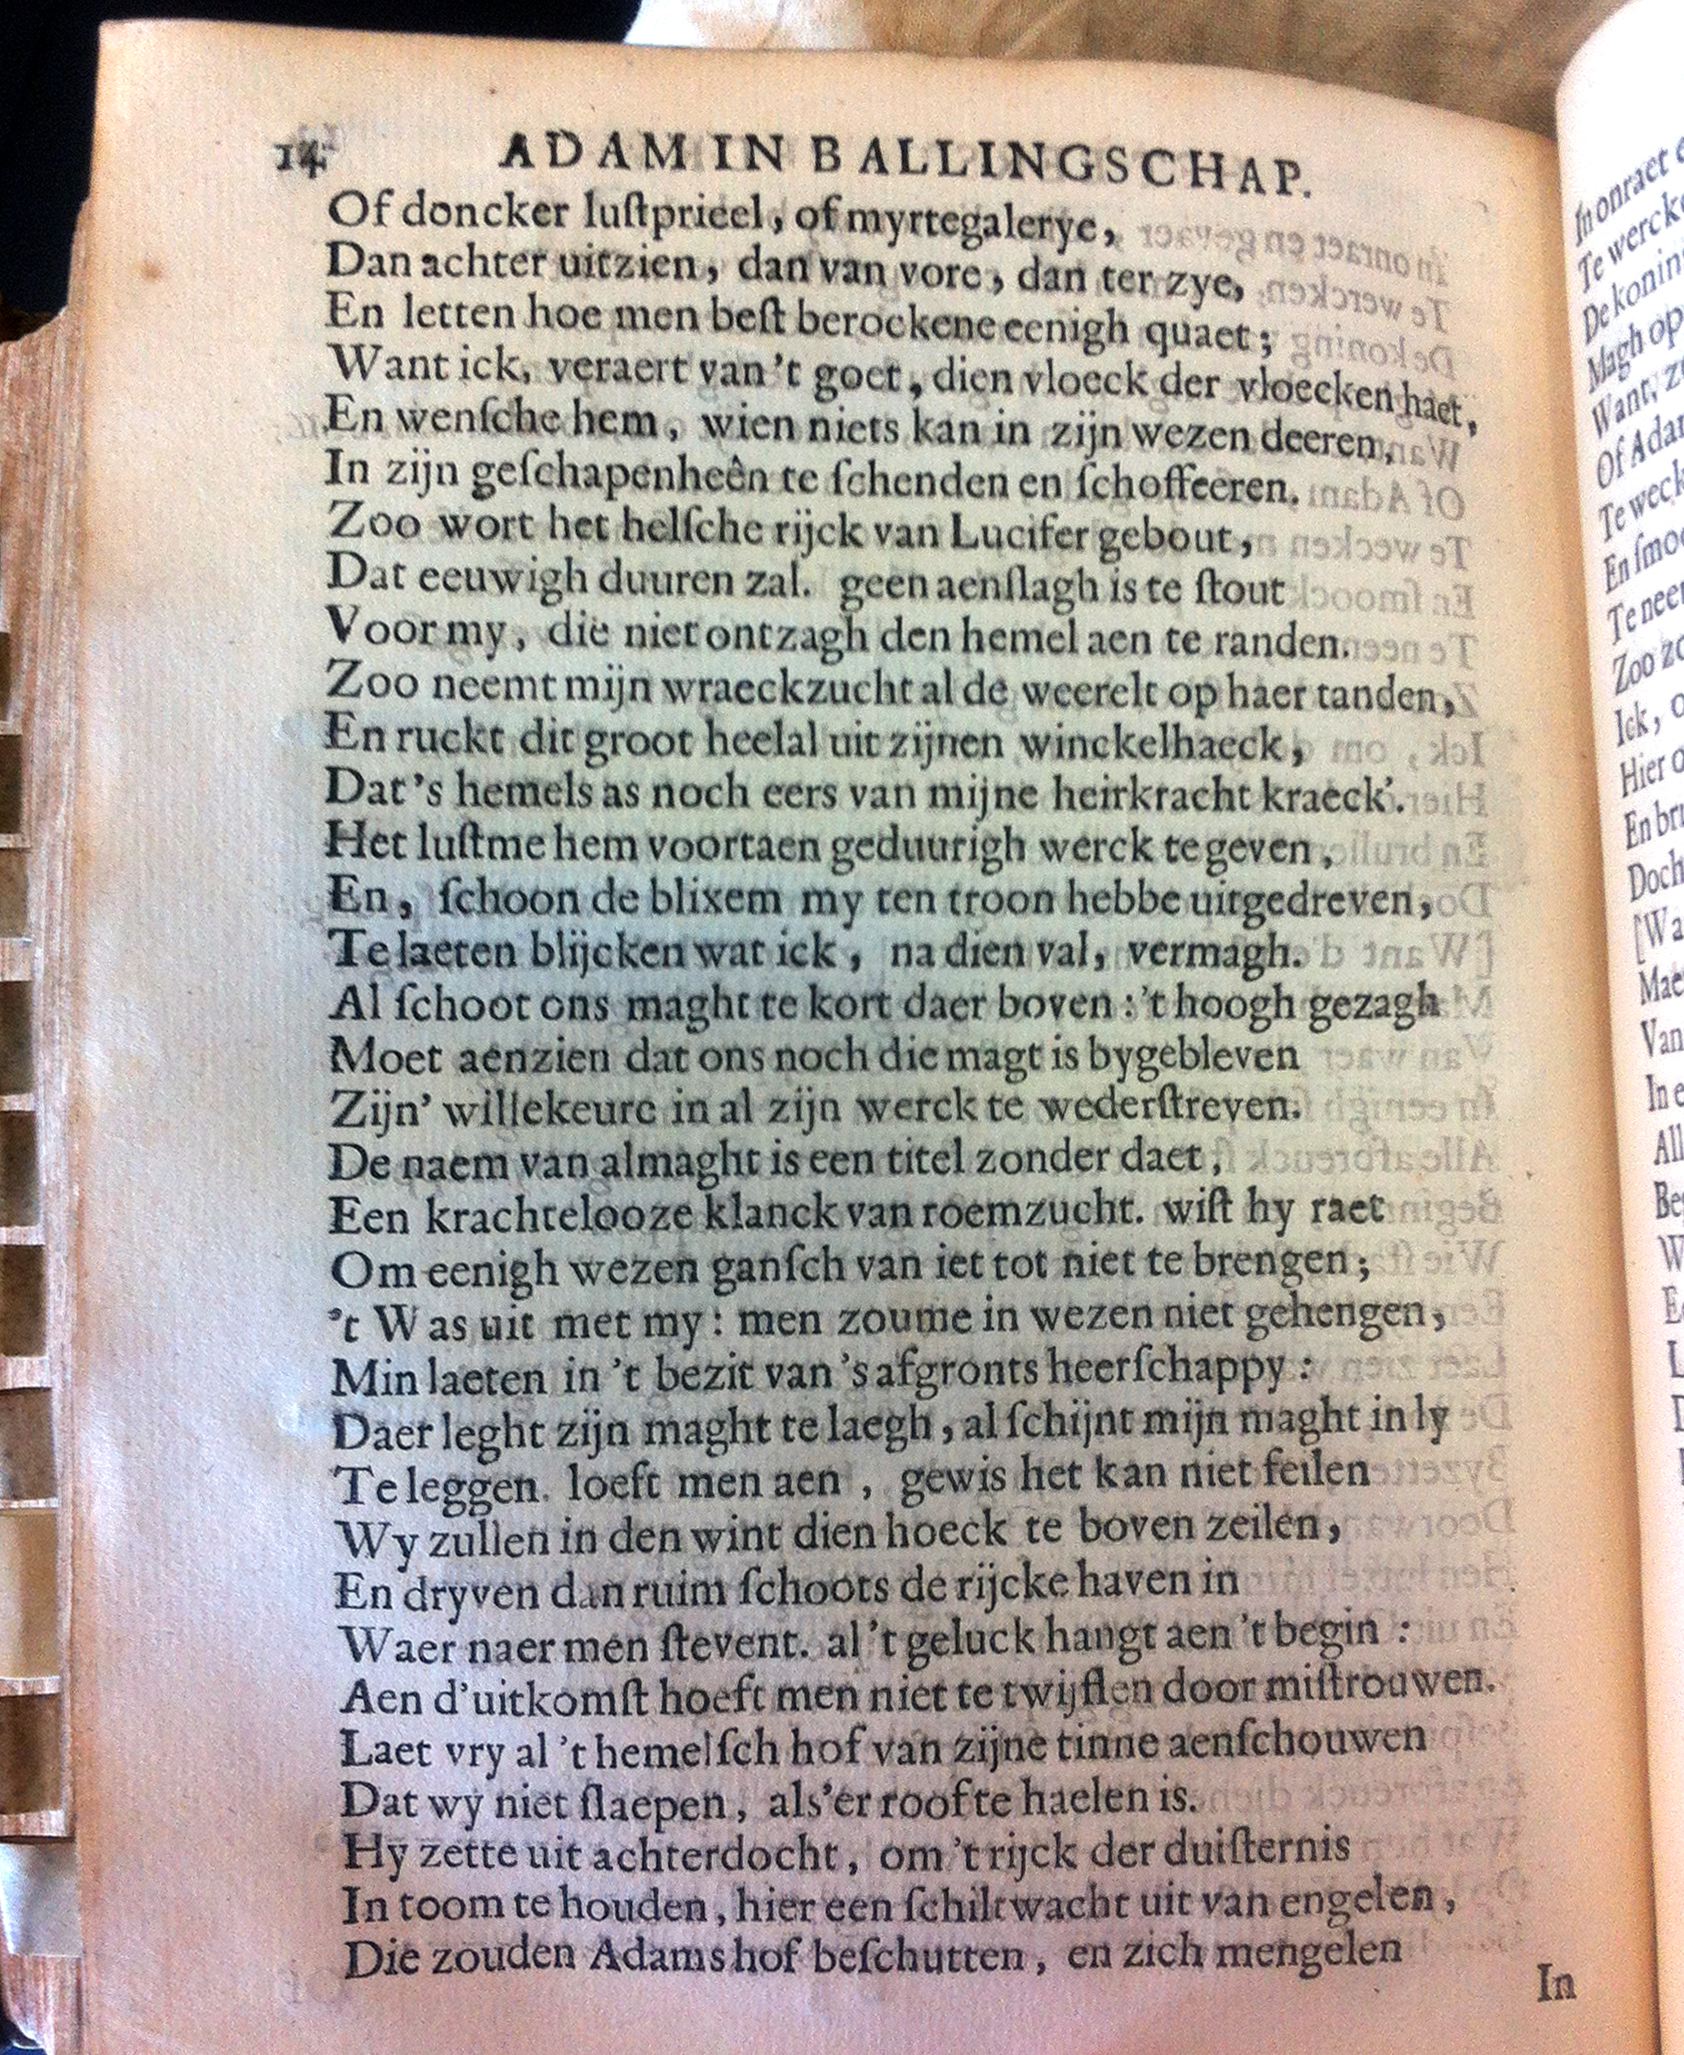 14 ADAM IN BALLINGSCHAP.
Of doncker luſtprieel, of myrtegalerye,
Dan achter uitzien, dan van vore, dan ter zye,
En letten hoe men beſt berockene eenigh quaet;
Want ick, veraert van 't goet, dien vloeck der vloecken haet,
En wenſche hem, wien niets kan in zijn wezen deeren,
In zijn geſchapenheên te ſchenden en ſchoffeeren.
Zoo wort het helſche rijck van Lucifer gebout,
Dat eeuwigh duuren zal. geen aenſlagh is te ſtout
Voor my, die niet ontzagh den hemel aen te randen.
Zoo neemt mijn wraeckzucht al de weerelt op haer tanden,
En ruckt dit groot heelal uit zijnen winckelhaeck,
Dat 's hemels as noch eers van mijne heirkracht kraeck'.
Het luſt me hem voortaen geduurigh werck te geven,
En, ſchoon de blixem my ten troon hebbe uitgedreven,
Te laeten blijcken wat ick, na dien val, vermagh.
Al ſchoot ons maght te kort daer boven: 't hoogh gezagh
Moet aenzien dat ons noch die magt is bygebleven
Zijn' willekeure in al zijn werck te wederſtreven.
De naem van almaght is een titel zonder daet,
Een krachtelooze klanck van roemzucht. wiſt hy raet
Om eenigh wezen ganſch van iet tot niet te brengen;
't Was uit met my: men zou me in wezen niet gehengen,
Min laeten in 't bezit van 's afgronts heerſchappy:
Daer leght zijn maght te laegh, al ſchijnt mijn maght in ly
Te leggen. loeft men aen, gewis het kan niet feilen
Wy zullen in den wint dien hoeck te boven zeilen,
En dryven dan ruim ſchoots de rijcke haven in
Waer naer men ſtevent. al 't geluck hangt aen 't begin:
Aen d'uitkomſt hoeft men niet te twijflen door miſtrouwen.
Laet vry al 't hemelſch hof van zijne tinne aenſchouwen
Dat wy niet ſlaepen, als'er roof te haelen is.
Hy zette uit achterdocht, om 't rijck der duiſternis
In toom te houden, hier een ſchiltwacht uit van engelen,
Die zouden Adams hof beſchutten, en zich mengelen
In
In onraet
Te wercke
De konin
Magh op
Want, z
Of Adar
Te weck
En ſmoo
Te neer
Zoo zo
Ick, o
Hier o
En bru
Doch
[Wa
Mae
Van
In e
All
Be
W